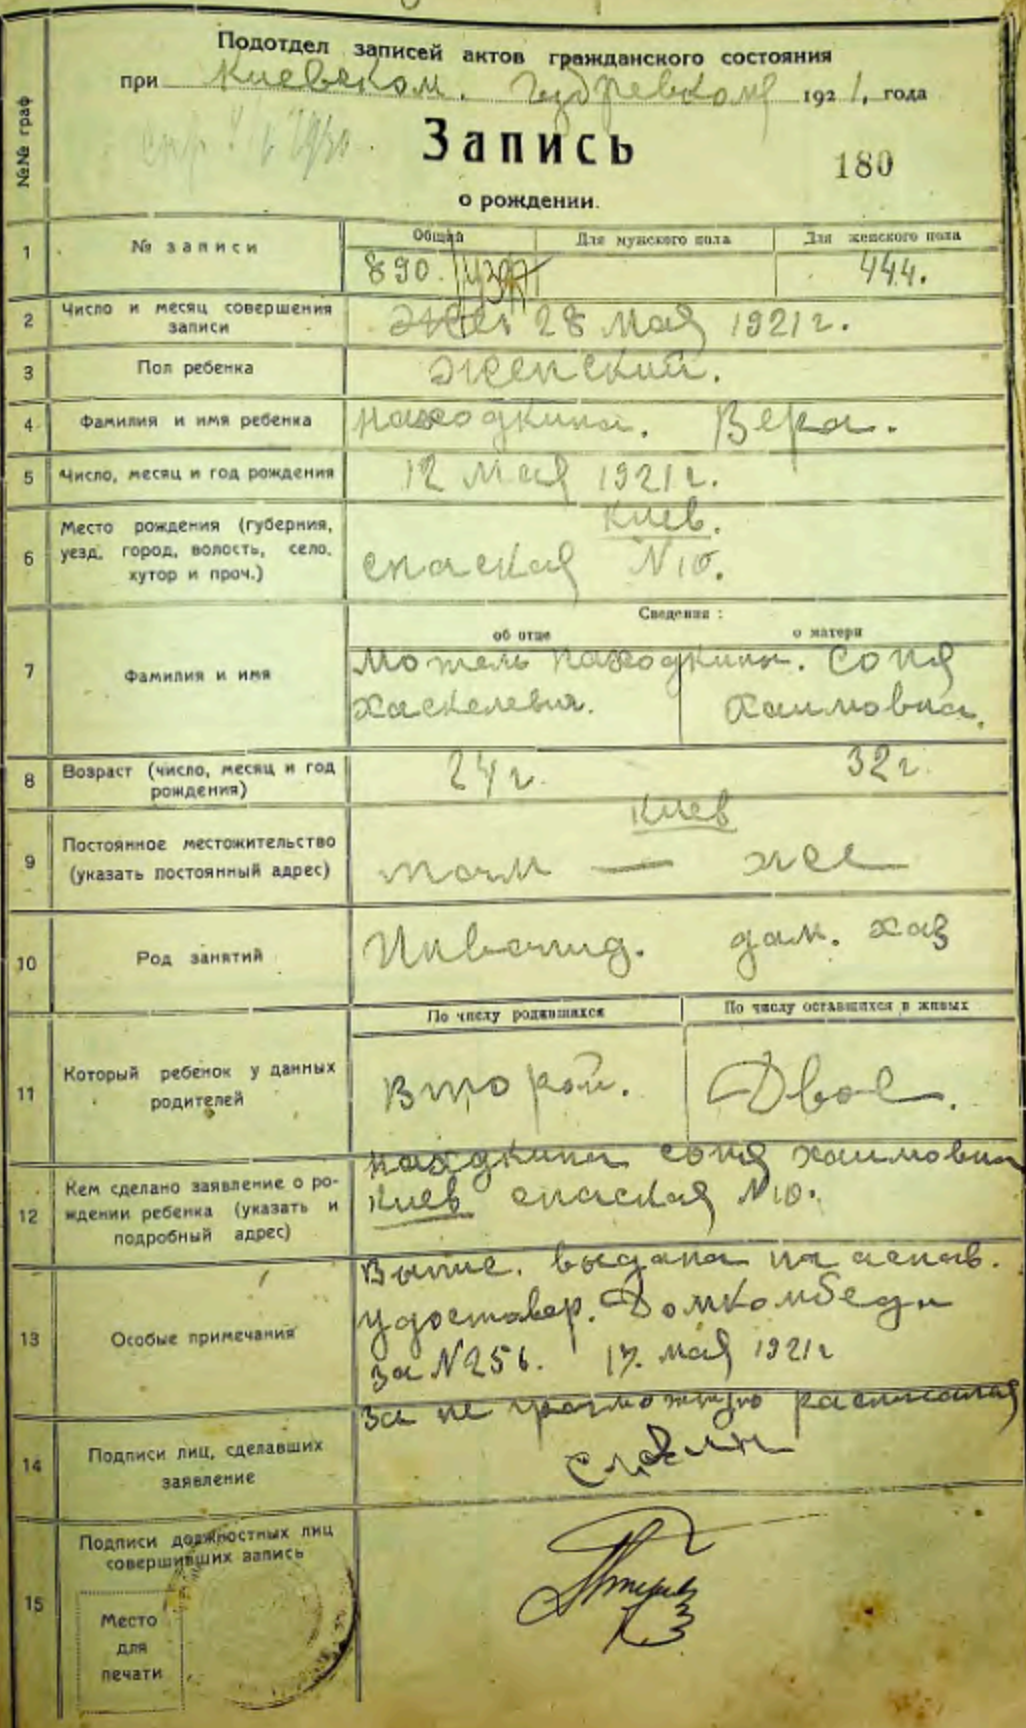 Подотдел записей актов гражданского состояния
при Киевском. Губревкоме 1921, года
№№ граф
Запись
180
о рождении.
1
№ записи
Общий
Для мужского пола
Для женского пола
890.
444.
2
Число и месяц совершения
записи
28 мая 1921 г.
3
Пол ребенка
Женский.
4
Фамилия и имя ребенка
Находкина. Вера.
5
Число, месяц и год рождения
12 мая 1921 г.
6
Место рождения (губерния,
уезд, город, волость, село,
хутор и проч.)
Киев.
Спаская N 10.
Сведения:
об отце
о матери
7
Фамилия и имя
Мотель Находкин. Соня
Хаскелевич. Хаимовна.
8
Возраст (число, месяц и год
рождения)
24 г.
32 г.
Киев
9
Постоянное местожительство
(указать постоянный адрес)
там — же
10
Род занятий
Инвалид. дом. хаз
По числу родившихся
По числу оставшихся в живых
11
Который ребенок у данных
родителей
Второй.
Двое.
12
Кем сделано заявление о ро-
ждении ребенка (указать и
подробный адрес)
Соня Хаимовна
Киев Спаская N 10.
13
Особые примечания
Выпис. выдана на аснав.
удоставер. Домкомбеда
за N 256. 17. мая 1921 г
14
Подписи лиц, сделавших
заявление
За не
15
Подписи должностных лиц
совершивших запись
Место
для
печати